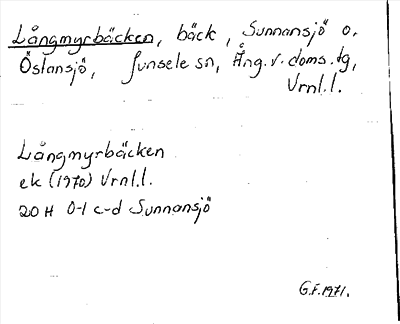 Långmyrbäcken, bäck, Sunnansjö o.
Östansjö, Junsele sn, Ång. v. doms. tg,
Vrnl.l.
Långmyrbäcken
ek (1970) Vrnl.l.
20 H 0-1 c-d Sunnansjö
G.F. 1971.